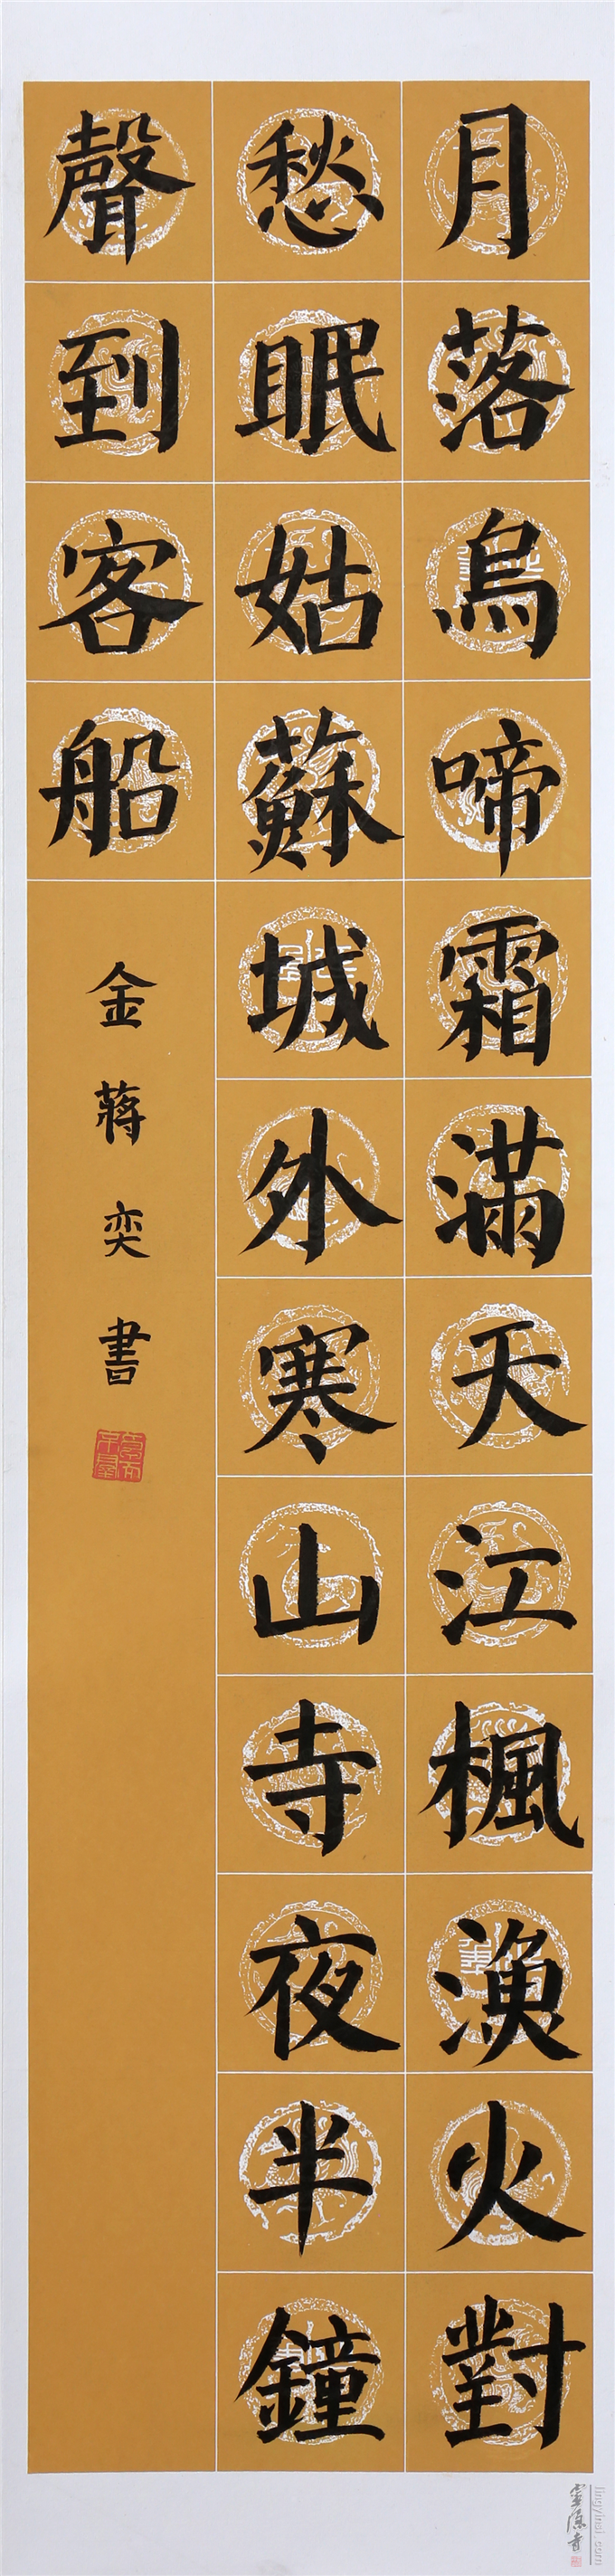 月落烏啼霜滿天江楓漁火對
愁眠姑蘇城外寒山寺夜半鐘
聲到客船
金蔣奕書